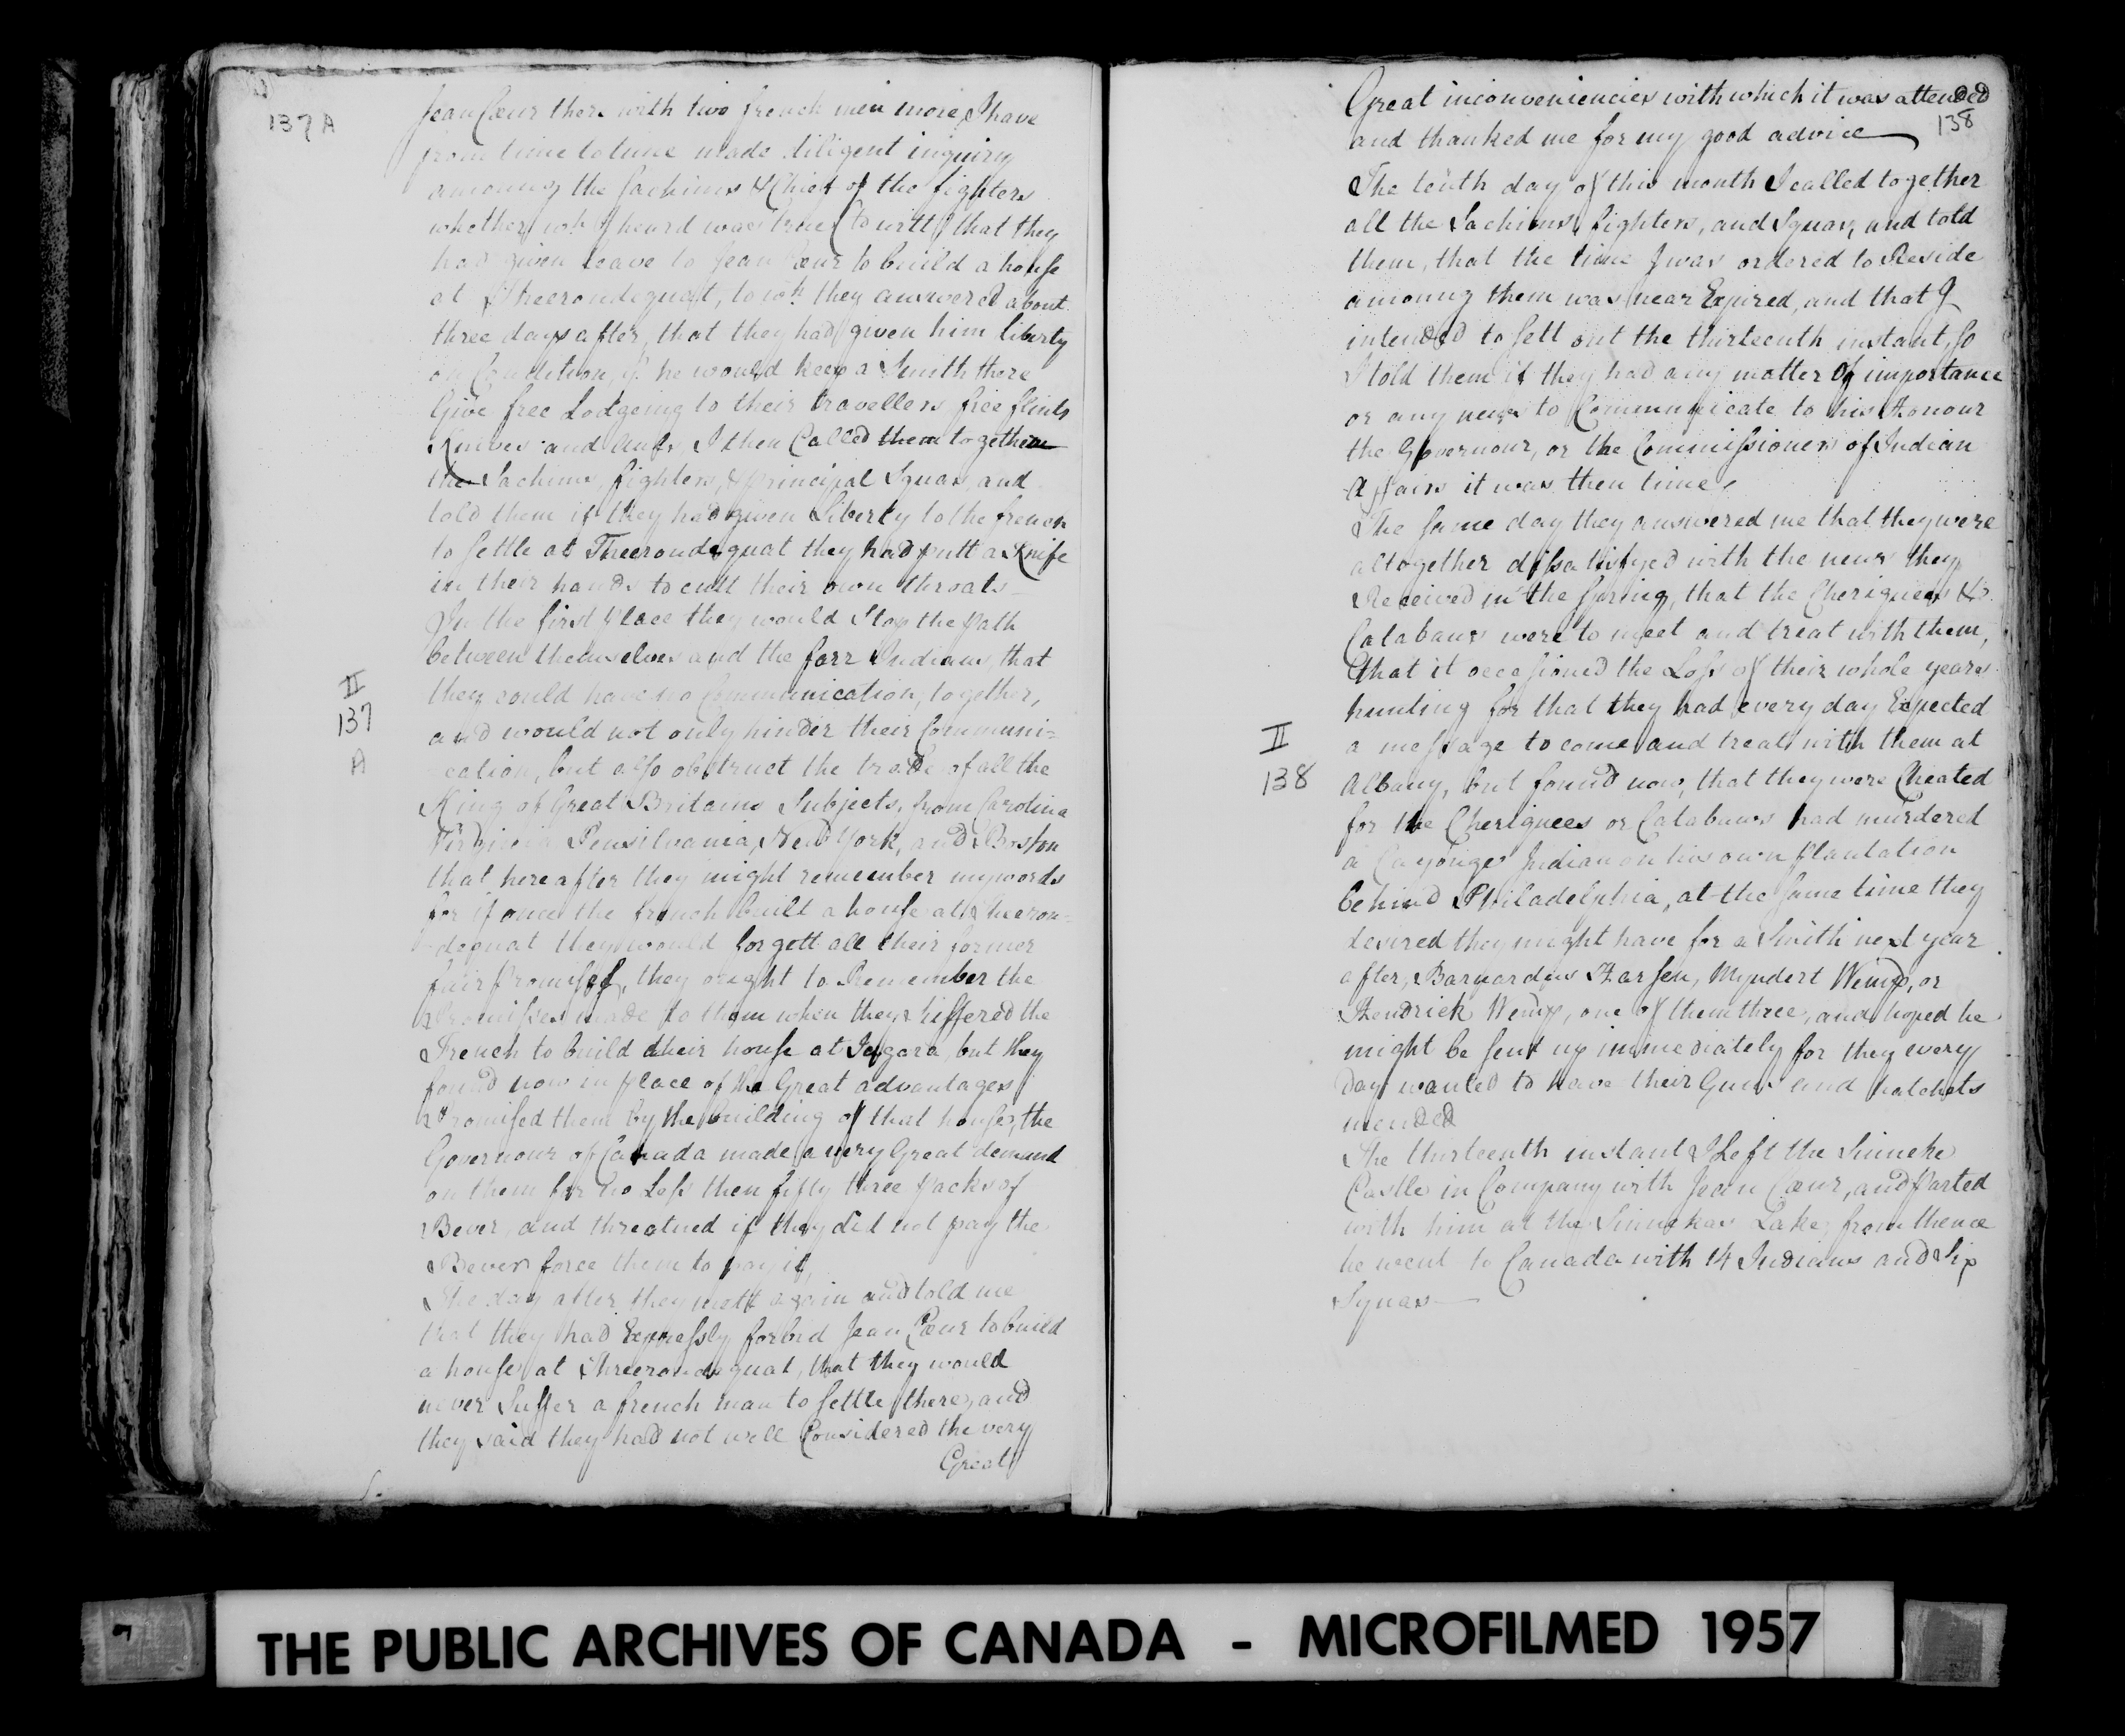 137A
Jean Cœur there with two french men more, I have
from time to time made diligent inquiry
among the Sachims & Chief of the fighters
whether wh I heard was true (to witt) that they
had given leave to Jean Cœur to build a house
at Theerondequat, to wh. they answered about
three days after, that they had given him liberty
on Condition, if he would keep a Smith there
Give free Lodgeing to their travellers free flints
Knives and Aules, I then Called them together
the Sachims, fighters, & principal Squas, and
told them if they had given Liberty to the french
to settle at Theerondequat they had putt a Knife
in their hands to cutt their own throats
In the first place they would Stop the Path
between themselves and the farr Indians, that
they could have no Communication, together,
II
137
A
and would not only hinder their Communi=
cation, but also obstruct the trade of all the
King of Great Britains Subjects, from Carolina
Virginia Pensilvania, New York, and Boston
that hereafter they might remember my words
for if once the french built a house at Theeron=
=dequat they would forgett all their former
fair promises, they ought to Remember the
Promisses made to them when they suffered the
French to build their house at Jagara, but they
found now in place of the Great advantages
Promised them by the building of that house, the
Governour of Canada made a very Great demand
on them for no Less then fifty three packs of
Bever, and threatned if they did not pay the
Bever force them to pay it,
The day after they mett again and told me
that they had Expressly forbid Jean Cœur to build
a house at Theerondequat, that they would
never Suffer a french man to settle there, and
they said they had not well Considered the very
Great
Great inconveniencies with which it was attended
138
and thanked me for my good advice
The tenth day of this month I called together
all the Sachims, fighters, and Squas, and told
them, that the time I was ordered to Reside
among them was near Expired, and that I
intended to sett out the thirteenth instant, so
I told them if they had any matter of importance
or any news to Communicate to his Honour
the Governour, or the Commissioners of Indian
Affairs it was then time,
The same day they answered me that they were
altogether dissatisfyed with the news they
Received in the spring, that the Cheriquees &
Catabaws were to meet and treat with them,
that it occasioned the Loss of their whole years
hunting for that they had every day Expected
II
138
a message to come and treat with them at
Albany, but found now, that they were Cheated
for the Cheriquees or Catabaws had murdered
a Cayouges Indian on his own plantation
behind Philadelphia, at the same time they
desired they might have for a Smith next year
after, Barnardus Harsen, Myndert Wemp, or
Hendrick Wemp, one of them three, and hoped he
might be sent up immediately for they every
day wanted to have their Guns and hatchets
mended
The thirteenth instant I Left the Sinneke
Castle in Company with Jean Cœur, and parted
with him at the Sinnekas Lake, from thence
he went to Canada with 14 Indians and Six
Squas
THE PUBLIC ARCHIVES OF CANADA - MICROFILMED 1957